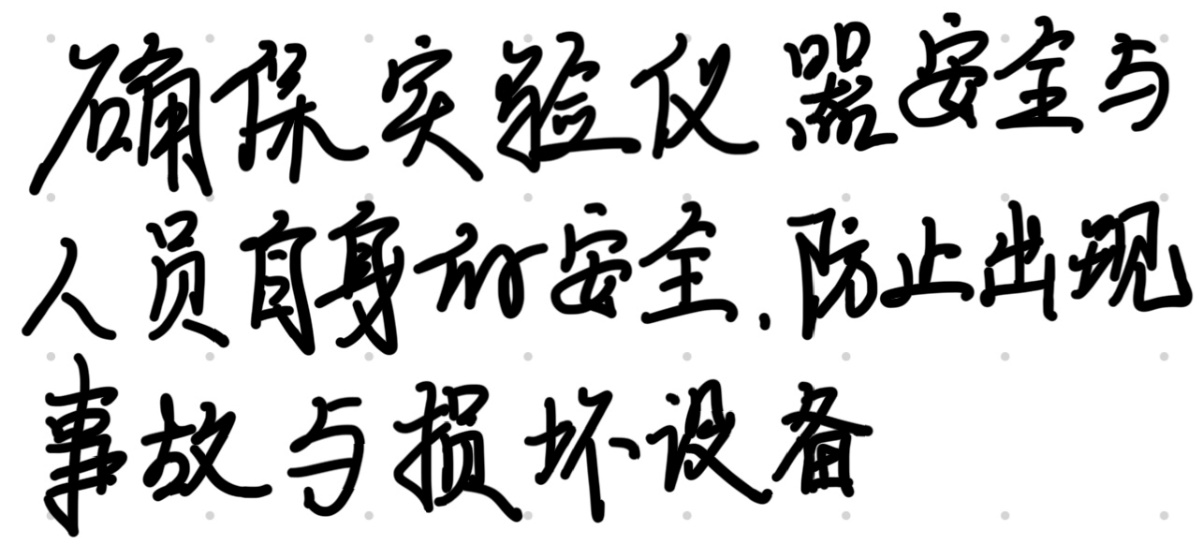 确保实验仪器安全与
人员自身的安全.防止出现
事故与损坏设备